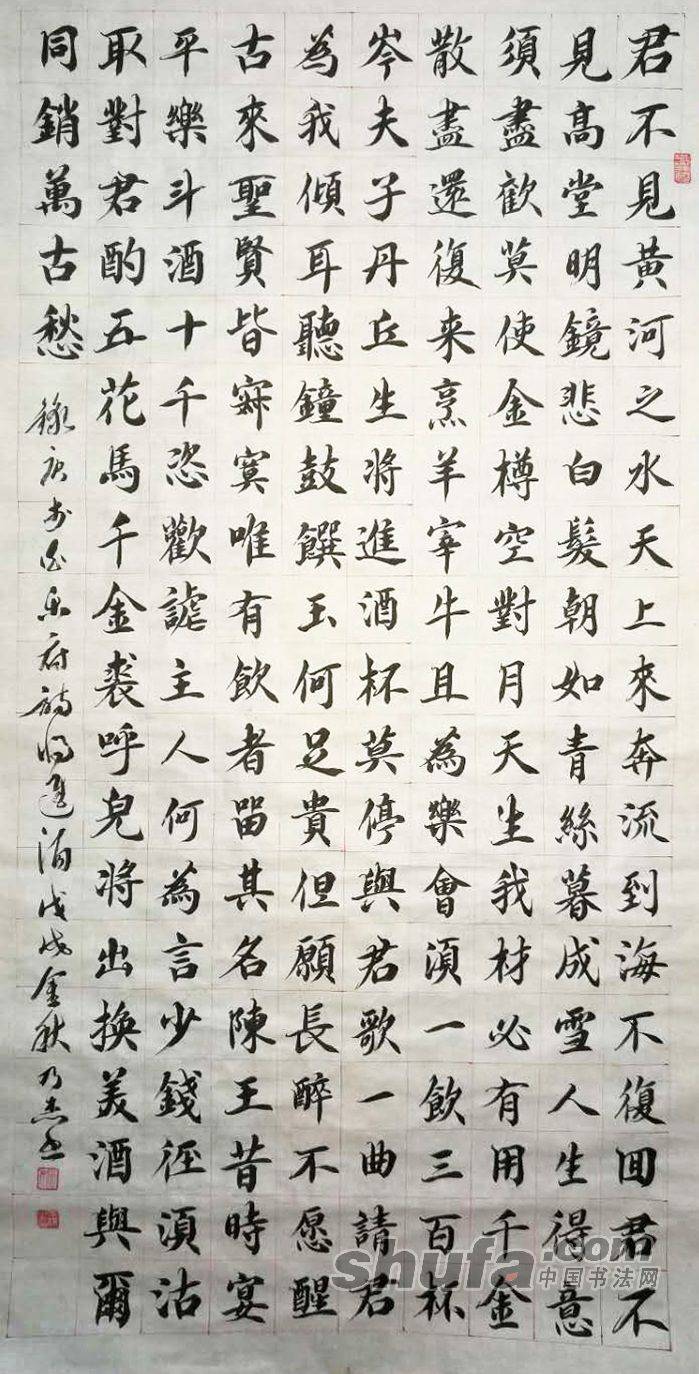 君不見黃河之水天上來奔流到海不復囬君不
見高堂明鏡悲白髮朝如青絲暮成雪人生得意
須盡歡莫使金樽空對月天生我材必有用千金
散盡還復来烹羊宰牛且為樂會須一飲三百杯
岑夫子丹丘生將進酒杯莫停與君歌一曲請君
為我傾耳聽鐘鼓饌玉何足貴但願長醉不愿醒
古來聖賢皆寂寞唯有飲者留其名陳王昔時宴
平樂斗酒十千恣歡謔主人何為言少錢徑須沽
取對君酌五花馬千金裘呼兒將出換美酒與爾
同銷萬古愁
錄唐李白乐府詩将進酒戊戌金秋乃杰书
shufa.com
中国书法网